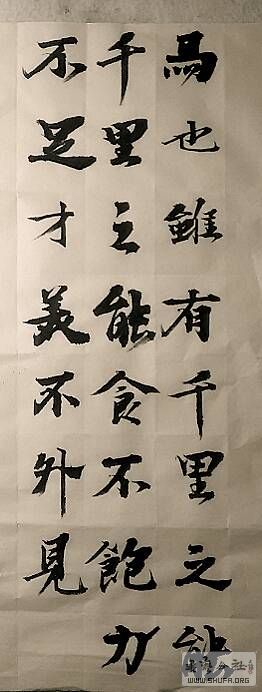 馬也雖有千里之能
千里之能食不飽力
不足才美不外見
WWW.SHUFA.ORG